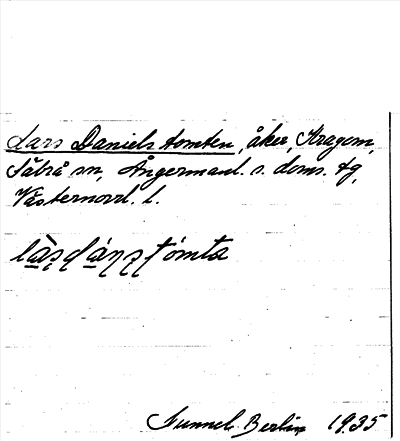 Lars Daniels tomten, åker, Kragom,
Säbrå sn, Ångermanl. s. doms. tg,
Västernorrl. l.
Gunnel Berlin 1935